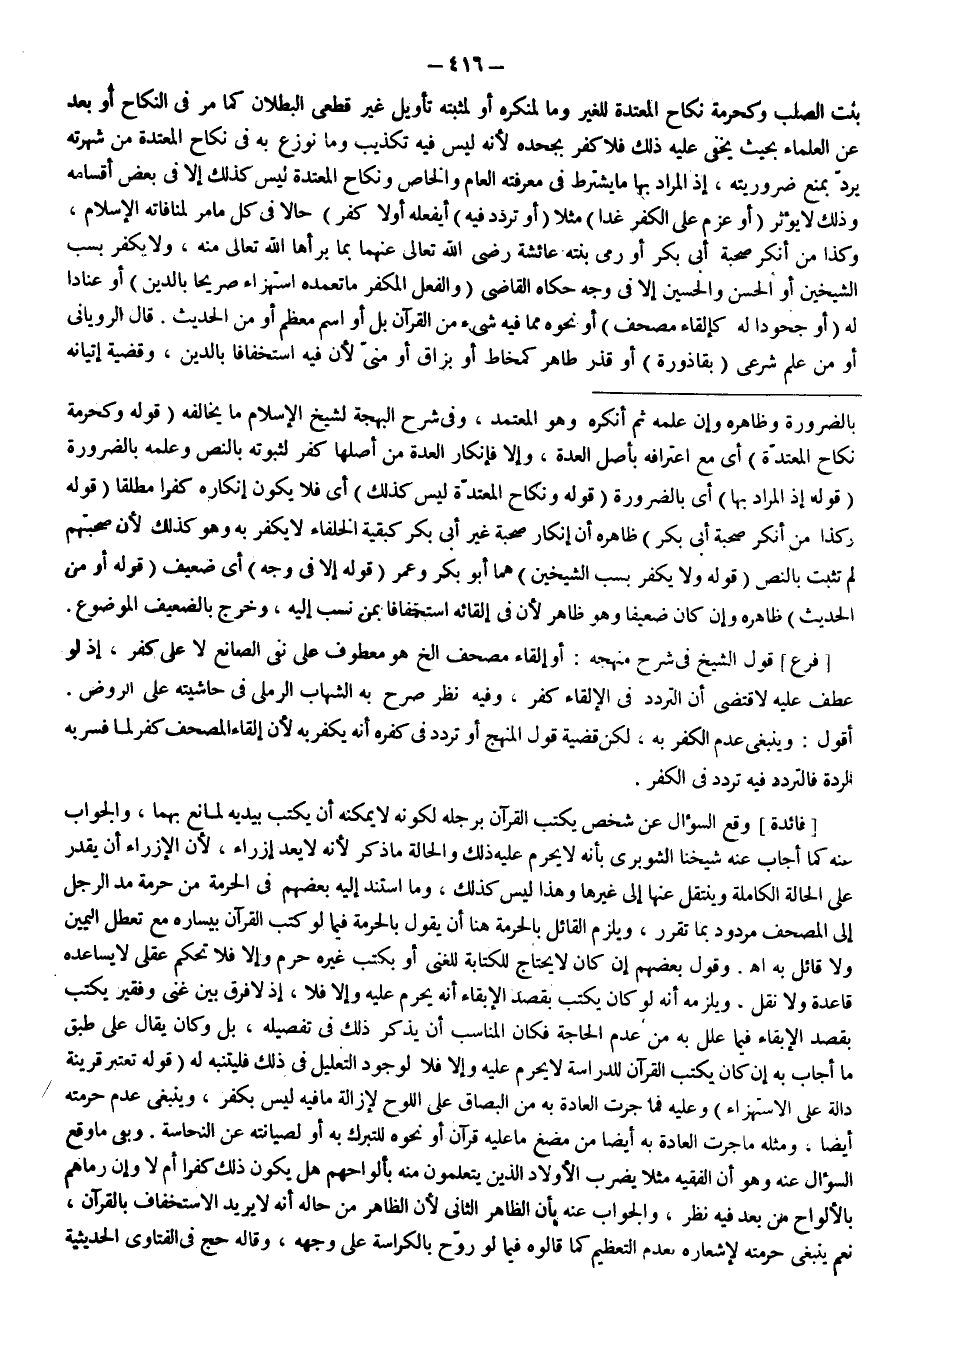 — ٤١٦ —
بنت الصلب وكحرمة نكاح المعتدة للغير وما لمنكره أو لمثبته تأويل غير قطعى البطلان كما مر فى النكاح أو بعد
عن العلماء بحيث يخفى عليه ذلك فلا كفر بجحده لأنه ليس فيه تكذيب وما نوزع به فى نكاح المعتدة من شهرته
يردّ بمنع ضروريته ، إذ المراد بها ما يشترط فى معرفته العام والخاص ونكاح المعتدة ليس كذلك إلا فى بعض أقسامه
وذلك لا يؤثر ( أو عزم على الكفر غدا ) مثلا ( أو تردّد فيه ) أيفعله أولا كفر ) حالا فى كل مامر لمنافاته الإسلام ،
وكذا من أنكر صحبة أبى بكر أو رمى بنته عائشة رضى الله تعالى عنهما بما برأها الله تعالى منه ، ولا يكفر بسب
الشيخين أو الحسن والحسين إلا فى وجه حكاه القاضى ( والفعل المكفر ماتعمده استهزاء صريحا بالدين ) أو عنادا
له ( أو جحودا له كإلقاء مصحف ) أو نحوه مما فيه شىء من القرآن بل أو اسم معظم أو من الحديث . قال الرويانى
أو من علم شرعى ( بقاذورة ) أو قذر طاهر كمخاط أو بزاق أو منىّ لأن فيه استخفافا بالدين ، وقضية إتيانه
بالضرورة وظاهره وإن علمه ثم أنكره وهو المعتمد ، وفى شرح البهجة لشيخ الإسلام ما يخالفه ( قوله وكحرمة
نكاح المعتدّة ) أى مع اعترافه بأصل العدة ، وإلا فإنكار العدة من أصلها كفر لثبوته بالنص وعلمه بالضرورة
( قوله إذ المراد بها ) أى بالضرورة ( قوله ونكاح المعتدّة ليس كذلك ) أى فلا يكون إنكاره كفرا مطلقا ( قوله
وكذا من أنكر صحبة أبى بكر ) ظاهره أن إنكار صحبة غير أبى بكر كبقية الخلفاء لا يكفر به وهو كذلك لأن صحبتهم
لم تثبت بالنص ( قوله ولا يكفر بسب الشيخين ) هما أبو بكر وعمر ( قوله إلا فى وجه ) أى ضعيف ( قوله أو من
الحديث ) ظاهره وإن كان ضعيفا وهو ظاهر لأن فى إلقائه استخفافا بمن نسب إليه ، وخرج بالضعيف الموضوع .
[ فرع ] قول الشيخ فى شرح منهجه : أو إلقاء مصحف الخ هو معطوف على نفى الصانع لا على كفر ، إذ لو
عطف عليه لاقتضى أن التردد فى الإلقاء كفر ، وفيه نظر صرح به الشهاب الرملى فى حاشيته على الروض .
أقول : وينبغى عدم الكفر به ، لكن قضية قول المنهج أو تردد فى كفره أنه يكفر به لأن إلقاء المصحف كفر لما فسر به
الردة فالتردد فيه تردد فى الكفر .
[ فائدة ] وقع السؤال عن شخص يكتب القرآن برجله لكونه لايمكنه أن يكتب بيديه لمانع بهما ، والجواب
عنه كما أجاب عنه شيخنا الشوبرى بأنه لا يحرم عليه ذلك والحالة ماذكر لأنه لايعد إزراء ، لأن الإزراء أن يقدر
على الحالة الكاملة وينتقل عنها إلى غيرها وهذا ليس كذلك ، وما استند إليه بعضهم فى الحرمة من حرمة مد الرجل
إلى المصحف مردود بما تقرر ، ويلزم القائل بالحرمة هنا أن يقول بالحرمة فيما لو كتب القرآن بيساره مع تعطل اليمين
ولا قائل به اه . وقول بعضهم إن كان لا يحتاج للكتابة للغنى أو بكتب غيره حرم وإلا فلا تحكم عقلى لا يساعده
قاعدة ولا نقل . ويلزمه أنه لو كان يكتب بقصد الإبقاء أنه يحرم عليه وإلا فلا ، إذ لافرق بين غنى وفقير يكتب
بقصد الإبقاء فيما علل به من عدم الحاجة فكان المناسب أن يذكر ذلك فى تفصيله ، بل وكان يقال على طبق
ما أجاب به إن كان يكتب القرآن للدراسة لا يحرم عليه وإلا فلا لوجود التعليل فى ذلك فليتنبه له ( قوله تعتبر قرينة
دالة على الاستهزاء ) وعليه فما جرت العادة به من البصاق على اللوح لإزالة مافيه ليس بكفر ، وينبغى عدم حرمته
أيضا ، ومثله ماجرت العادة به أيضا من مضغ ماعليه قرآن أو نحوه للتبرك به أو لصيانته عن النجاسة . وبقى ماوقع
السؤال عنه وهو أن الفقيه مثلا يضرب الأولاد الذين يتعلمون منه بألواحهم هل يكون ذلك كفرا أم لا وإن رماهم
بالألواح من بعد فيه نظر ، والجواب عنه بأن الظاهر الثانى لأن الظاهر من حاله أنه لايريد الاستخفاف بالقرآن ،
نعم ينبغى حرمته لإشعاره بعدم التعظيم كما قالوه فيما لو روّح بالكراسة على وجهه ، وقاله حج فى الفتاوى الحديثية